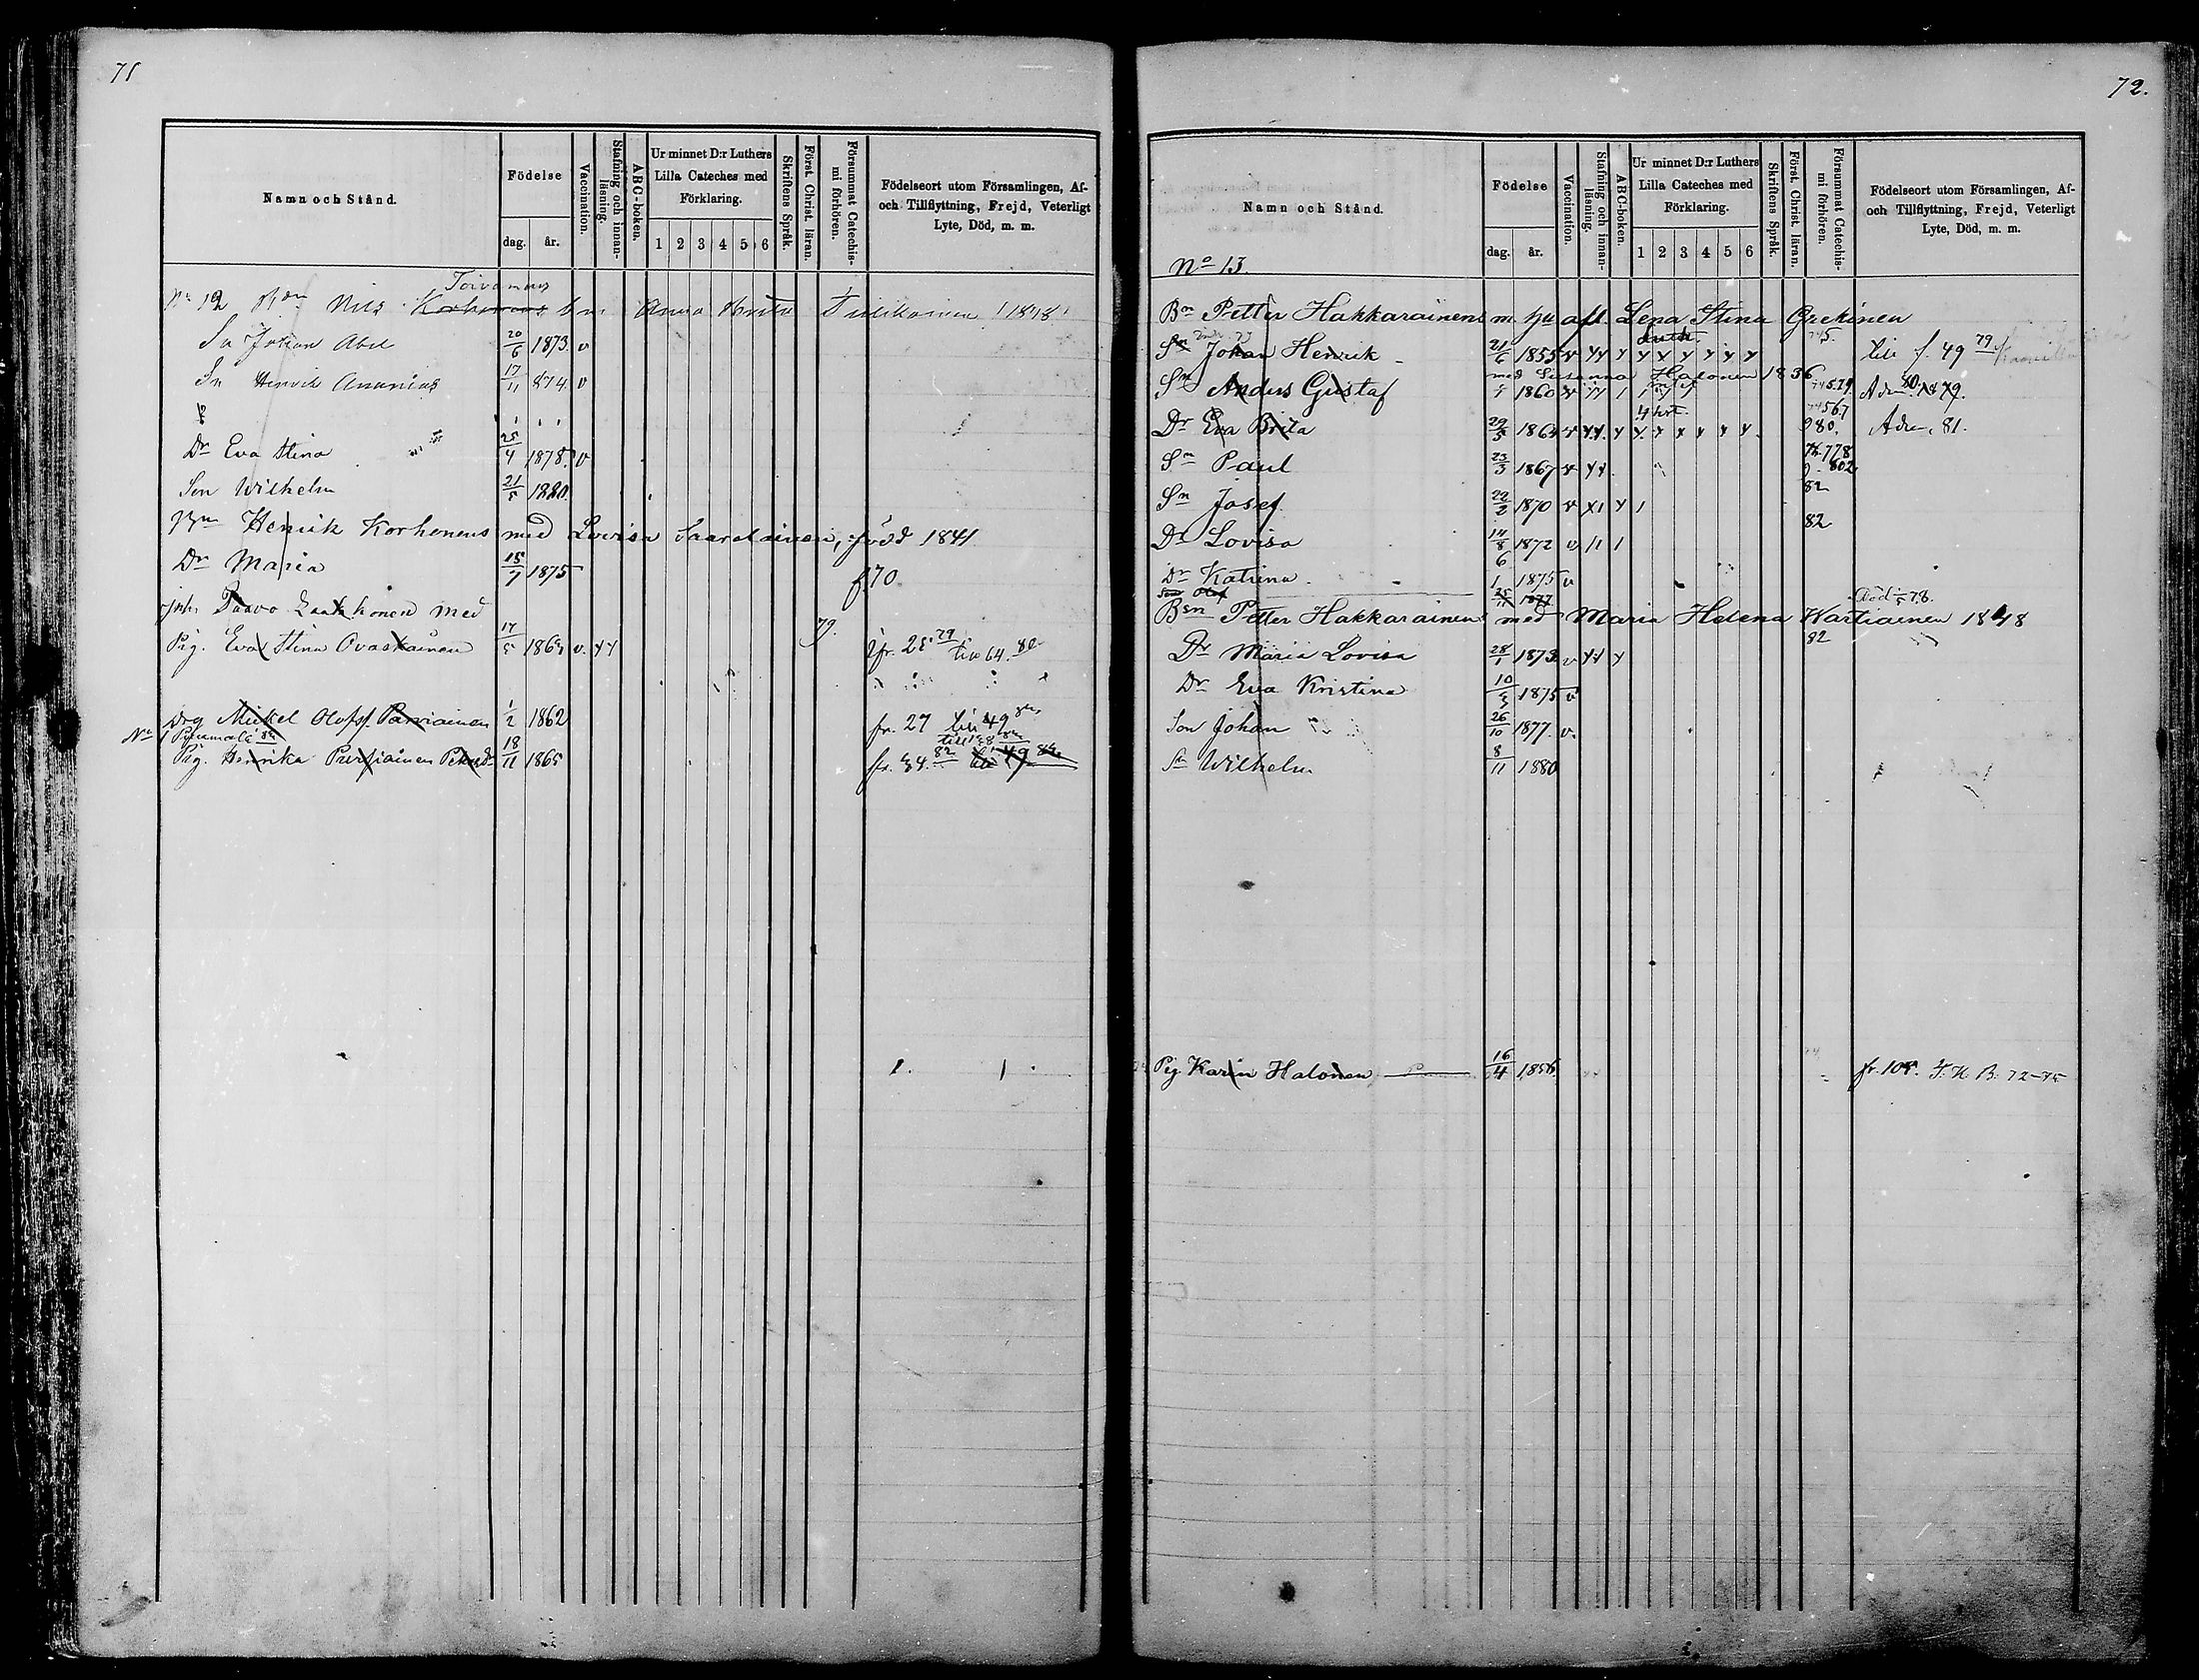 71
Namn och Stånd.
Födelse
dag. år.
Vaccination.
Stafning och innanläsning.
ABC-boken.
Ur minnet D:r Luthers Lilla Cateches med Förklaring.
1 2 3 4 5 6
Skriftens Språk.
Först. Christ. läran.
Försummat Catechismi förhören.
Födelseort utom Församlingen, Af- och Tillflyttning, Frejd, Veterligt Lyte, Död, m. m.
Toivanens
No 12 Bsn Nils Korhonens Anna Brita Tiilikainen 1848
Sn Johan Abel 20/6 1873 v
Sn Henrik Ananias 17/11 874 v
Dr Eva Stina 25/4 1878 v
Son Wilhelm 21/5 1880
Bsn Henrik Korhonens med Lovisa Saarelainen, född 1841
Dr Maria 15/7 1875 f 70
Paavo Laakkonen med
Pig. Eva Stina Ovaskainen 17/5 1865 v. yy 79. fr. 25 79 till 64. 80
Drg Mickel Olofsf. Parviainen 1/2 1862 fr. 27 till 49
Pig. Henrika Pursiainen 18/11 1865 fr. 34. 82 till 49 82
72.
Namn och Stånd.
Födelse
dag. år.
Vaccination.
Stafning och innanläsning.
ABC-boken.
Ur minnet D:r Luthers Lilla Cateches med Förklaring.
1 2 3 4 5 6
Skriftens Språk.
Först. Christ. läran.
Försummat Catechismi förhören.
Födelseort utom Församlingen, Af- och Tillflyttning, Frejd, Veterligt Lyte, Död, m. m.
No 13.
Bsn Petter Hakkarainens m. hu afl. Lena Stina Grekinen
Sn Johan Henrik 21/6 1855 v yy y y y y y y y till f. 49 79
med Susanna Halonen 1836
Sn Anders Gustaf 1860 v yy
Dr Eva Brita 29/5 1864 v yy y y y y y y y 80. Adm. 81.
Sn Paul 23/3 1867 v yy
82
Sn Josef 22/2 1870 v
82
Dr Lovisa 14/8 1872 v
Dr Katrina 6/1 1875 v
Son Olof 25/11 1877 Död 78.
Bsn Petter Hakkarainens med Maria Helena Wartiainen 1848
Dr Maria Lovisa 28/1 1873 v yy y 82
Dr Eva Kristina 10/3 1875 v
Son Johan 26/10 1877. v.
Sn Wilhelm 8/11 1880
Pig Karin Halonen 16/4 1856 fr. 105. T. K. B. 72-75